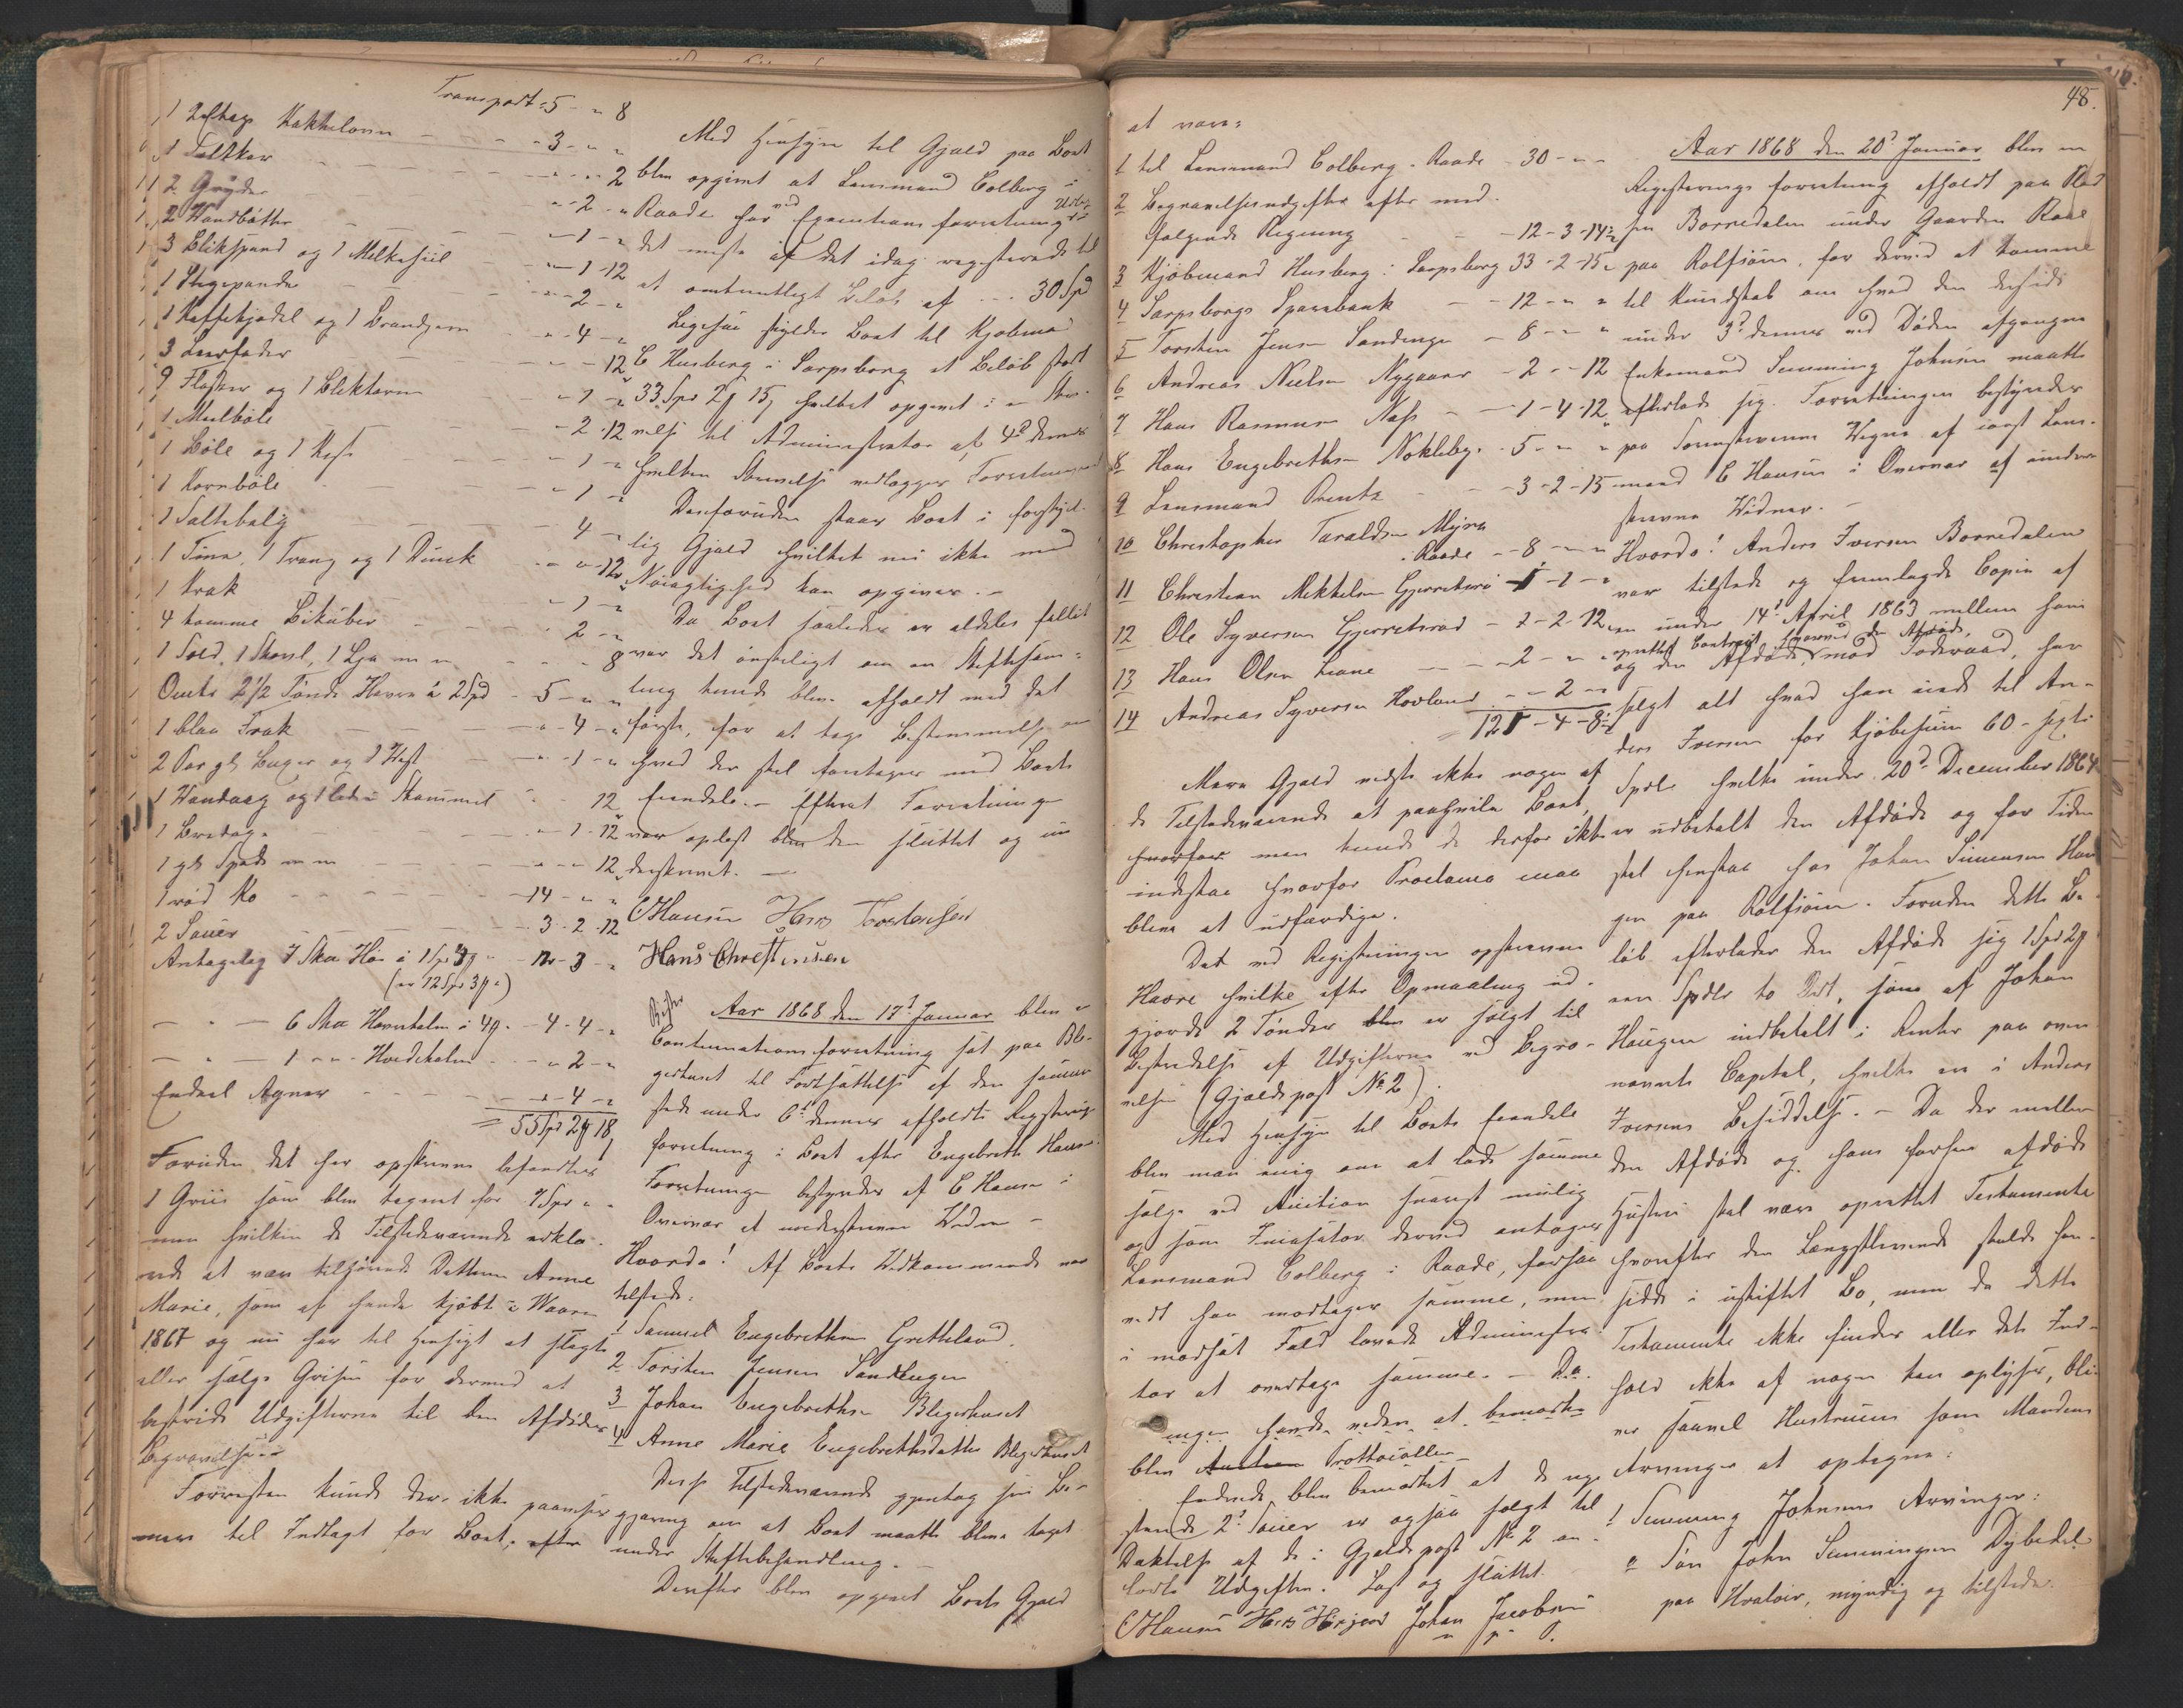 Transport: 5 - " 8
1 2 Etages Kakkelovn - - 3 - " "
1 Saltkar - - " - " 2
2 Gryder - " - 2 - "
2 Vandbøtter - " - 1 - "
3 Blikspand og 1 Melkesiil - " - 1 - 12
1 Stegepande - " - 2 - "
1 Kaffekjedel og 1 Brandjern - " - 4 - "
3 Leerfader - " - 12
9 Flasker og 1 Bliktavn - " - 1 - "
1 Meelbøle - 2 - 12
1 Bøle og 1 - 1 - "
1 Kornbøle - 1 - "
1 Saltebalg 4 - "
1 Tine, 1 Traug og 1 Dunk - " - " - 12
1 Krak - 1 - "
4 tomme Bikuber - 2 - "
1 Sold, 1 Skovl, 1 Lja m m - 8
Omtr 2 1/2 Tønde Havre à 2 Spd - 5 - " "
1 blaa Frak - " - 4 - "
2 Par gl Buxer og 1 Vest - " - 1 - "
1 Vandaag og 1 liden Skammel - 12
1 Bredøg - " - 1 - 12
1 gl Spade m m - " - " - 12
1 rød Ko - 14 - " "
2 Sauer - 3 - 2 - 12
Antagelig 7 Skp Hø à 1 Spd - 12 - 3 - "
(er 12 Spd 3 # ")
- " - 6 Skp Havrehalm à 4 # - 4 - 4 - "
- " - 1 - " - Hvedehalm - " 2 - "
Endeel Agner - " - 4 - "
= 55 Spd 2 # 18
Foruden det her opskrevne befandtes
1 Griis som blev tegnet for 7 Spd "
men hvilken de Tilstedeværende erklæ-
rede at være tilhørende Datteren Anne
Marie, som af hende kjøbt i Vaaren
1867 og nu har til Hensigt at slagte
eller sælge Grisen for dermed at
bestride Udgifterne til den Afdødes
Begravelse.
Forresten kunde der ikke paavises
mere til Indtægt for Boet, efter
Med Hensyn til Gjæld paa Boet
blev opgivet at Lensmand Colberg i
Raade har ved Executions forretning
det meste af det idag registrerede til
et omtrentligt Beløb af --- 30 Spd
Ligesaa skylder Boet til Kjøbmd
C Husberg i Sarpsborg et Beløb stort
33 Spd 2 # 15 hvilket opgivet i en Skri-
velse til Administrator af 4de dennes
hvilken Skrivelse vedlægges Forretningen
Desforuden staar Boet i forskjel-
lig Gjæld hvilket nu ikke med
Nøiagtighed kan opgives. -
Da Boet saaledes er aldeles fallit
var det ønskeligt om en Skiftesam-
ling kunde blive afholdt med det
første, for at tage Bestemmelse om
hvad der skal foretages med Boets
Eiendele. - Efterat Forretningen
var oplæst blev den sluttet og un
derskrevet. -
CHansen Hans Torstensen
Hans Christensen
Aar 1868 den 17d Januar blev en
Continuationsforretning sat paa Ble-
gerhuset til Fortsættelse af den samme
steds under 6te dennes afholdte Registrerings
forretning i Boet efter Engebreth Hansen.
Forretningen bestyredes af C Hansen i
Onsøe af undertegnede Vidner -
Hvorda! Af Boets Vedkommende var
tilstede:
1 Samuel Engebrethsen Gretteland.
2 Torsten Jensen Sandengen
3 Johan Engebrethsen Blegerhuset
4 Anne Marie Engebrethsdatter Blegerhuset
Disse Tilstedeværende gjentog sin Be-
gjæring om at Boet maatte blive taget
under Skiftebehandling. -
Derefter blev opgivet Boets Gjæld
48.
at være:
1 til Lensmand Colberg i Raade - 30 - " -
2 Begravelsesudgifter efter med-
følgende Regning - - 12 - 3 - 14
3 Kjøbmand Husberg i Sarpsborg 33 - 2 - 15
4 Sarpsborgs Sparebank - 12 - " "
5 Torsten Jensen Sandengen - 8 - " "
6 Andreas Nielsen Nygaard - 2 - " 12
7 Hans Rasmussen Næs - 1 - 4 - 12
8 Hans Engebrethsen Nøkleby - 5 - " "
9 Lensmand Prentz - 3 - 2 - 15
10 Christopher Taraldsen Myren
i Raade - 8 - " "
11 Christian Mikkelsen Gjerretsrø - 1 - "
12 Ole Syversen Gjerretsrød - 2 - 12
13 Hans Olsen Liane - - 2 - "
14 Andreas Syversen Hovland - - 2 - "
= 121 - 4 - 8
Mere Gjæld vidste ikke nogen af
de Tilstedeværende at paahvile Boet,
hvorfor men kunde de derfor ikke
indestaa hvorfor Proclama maa
blive at udfærdige.
Det ved Registreringen opskrevne
Havre hvilke efter Opmaaling ud-
gjorde 2 Tønder blev er solgt til
Bestridelse af Udgifterne ved Begra-
velsen (Gjældspost No 2).
Med Hensyn til Boets Eiendele
blev man enig om at lade samme
sælge ved Auction snarest mulig
og som Incasator derved antages
Lensmand Colberg i Raade, forsaa
vidt han modtager samme, men
i modsat Fald lovede Administra-
tor at overtage samme. - Da
ingen havde videre at bemærke
blev Auction Protocollen
Endvidere blev bemærket at de nye
stende 2de Sauer er ogsaa solgt til
Dækkelse af de i Gjældspost No 2 an-
førte Udgifter. Læst og sluttet.
CHansen Hans Johan Jacobsen
Aar 1868 den 20d Januar blev en
Registrerings forretning afholdt paa Plad
sen Borredalen under Gaarden Raae
paa Rolfsøen, for derved at komme
til Kundskab om hvad den herside
under 3de dennes ved Døden afgangne
Enkemand Simming Johnsen maatte
efterlade sig. Forretningen bestyredes
paa Sorenskriverens Vegne af const. Lens-
mand C Hansen i Onsøe af under-
skrevne Vidner. -
Hvorda! Anders Iversen Borredalen
var tilstede og fremlagde Copie af
en under 14de April 1863 mellem ham
oprettet Contract, hvorved den Afdøde,
og den Afdøde mod Føderaad, har
solgt alt hvad han eiede til An-
ders Iversen for Kjøbesum 60 - sexti
Spdlr hvilke under 20de December 1864
er udbetalt den Afdøde og for Tiden
skal henstaa hos Johan Simensen Hau
gen paa Rolfsøen. Foruden dette Be-
løb efterlader den Afdøde sig 1 Spd 2 #
een Spdlr to Ort, som af Johan
Haugen indbetalt i Renter paa oven
nævnte Capital, hvilke er i Anders
Iversens Besiddelse. - Da der mellem
den Afdøde og hans forhen afdøde
Hustru skal være oprettet Testamente
hvorefter den Længstlevende skulde hen-
sidde i uskiftet Bo, men da dette
Testamente ikke findes eller dets Ind-
hold ikke af nogen kan oplyses, bli-
ver saavel Hustruens som Mandens
Arvinger at optegne:
1 Simming Johnsens Arvinger:
a Søn John Simmingsen Dybedal
paa Hvaløer, myndig og tilstede.